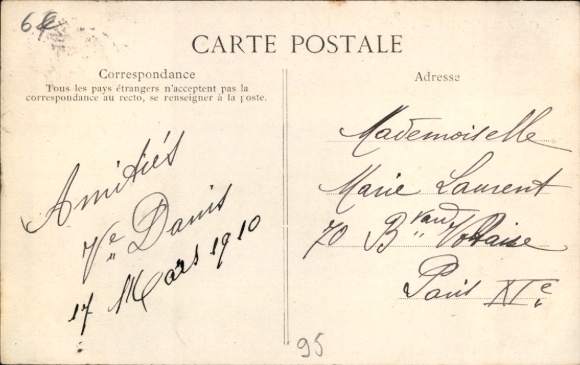 CARTE POSTALE
Correspondance
Tous les pays étrangers n'acceptent pas la
correspondance au recto, se renseigner à la poste.
Adresse
Amitiés
Ve Danis
17 Mars 1910
Mademoiselle
Marie Laurent
70 Bvard Voltaire
Paris XIe
95